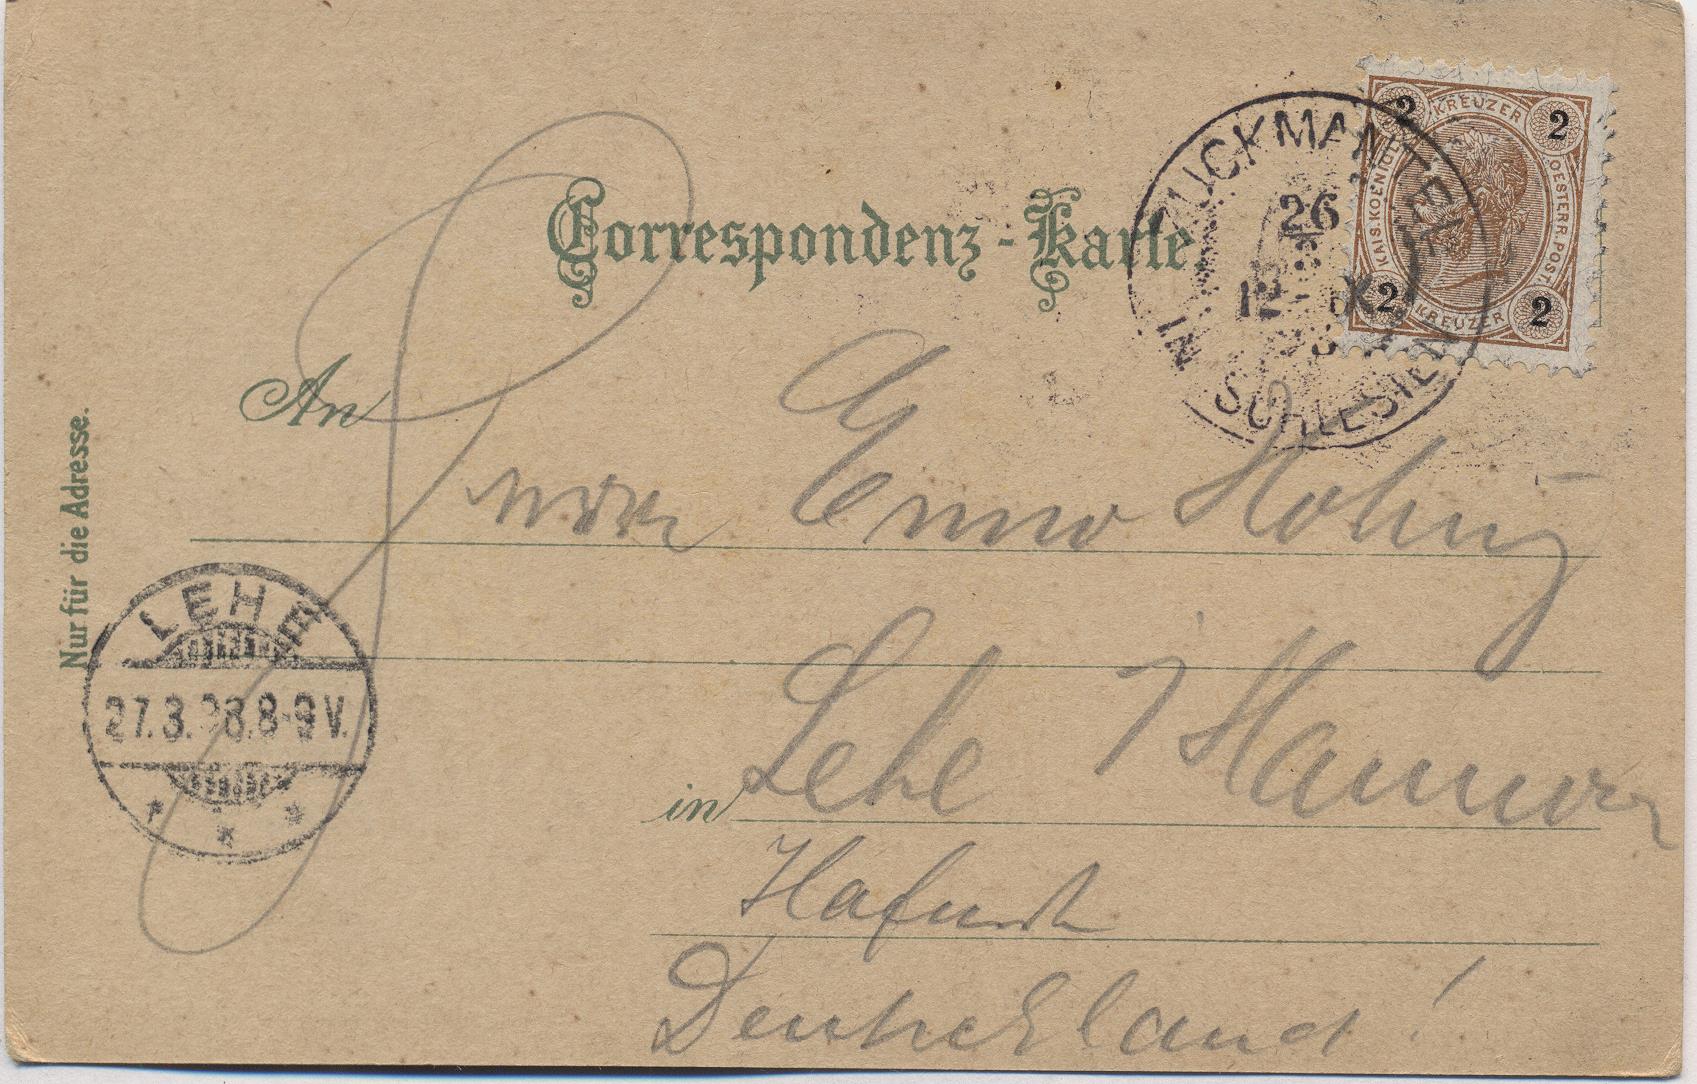 Correspondenz-Karte.
ZUCKMANTEL
IN SCHLESIEN
26
3
KREUZER
2 2
KAIS. KOENIGL. OESTERR. POST
2 2
KREUZER
An
Herrn Enno
Nur für die Adresse.
LEHE
27.3.98.8-9V.
in Lehe / Hannover
Deutschland!